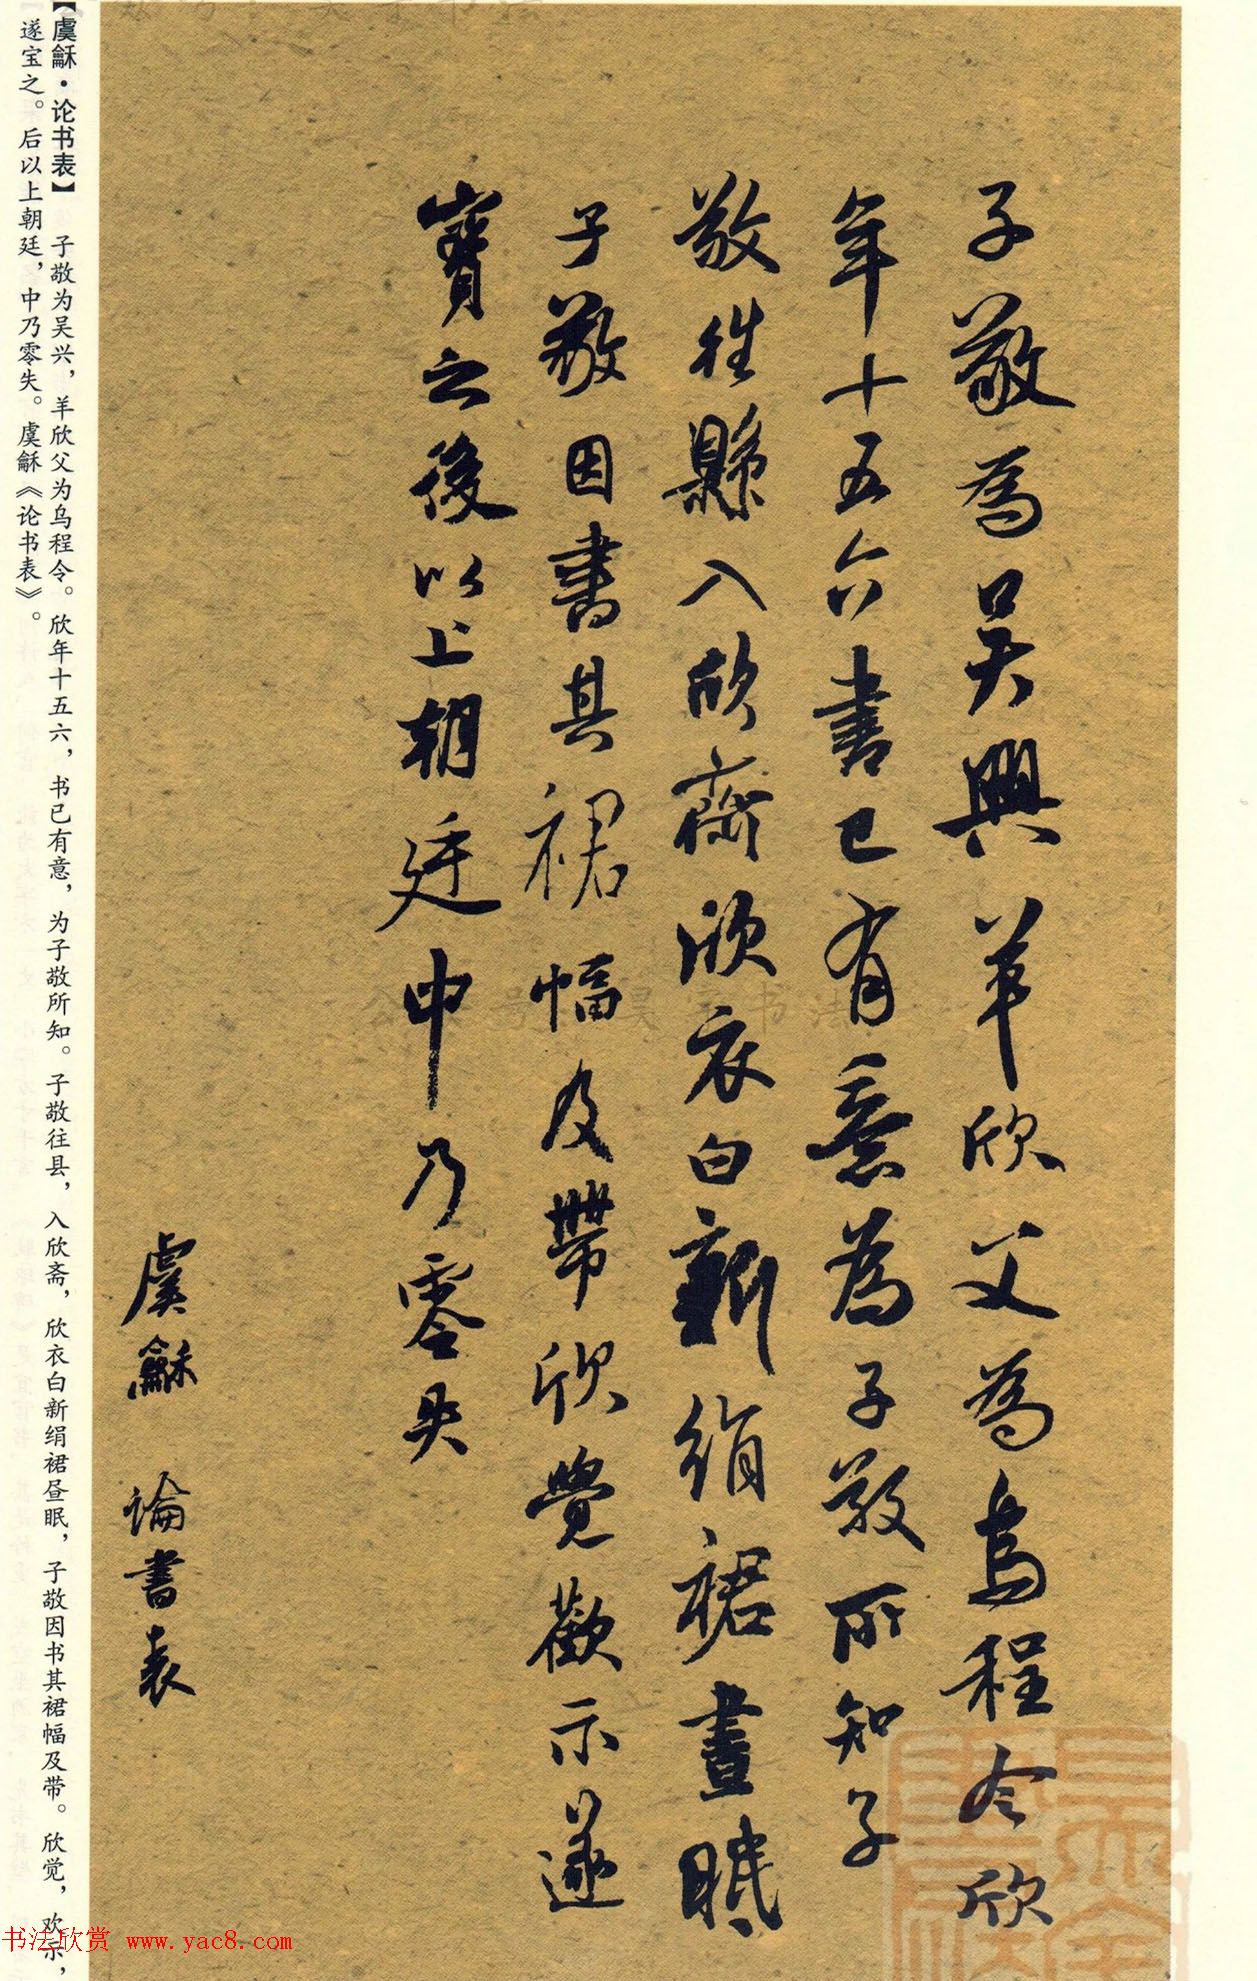 子敬為吴興羊欣父為烏程令欣
年十五六書已有意為子敬所知子
敬往縣入欣齋欣衣白新絹裙晝眠
子敬因書其裙幅及帶欣覺歡示遂
寶之後以上朝廷中乃零失
虞龢 論書表
【虞龢·论书表】 子敬为吴兴，羊欣父为乌程令。欣年十五六，书已有意，为子敬所知。子敬往县，入欣斋，欣衣白新绢裙昼眠，子敬因书其裙幅及带。欣觉，欢示，
遂宝之。后以上朝廷，中乃零失。虞龢《论书表》。
书法欣赏 www.yac8.com